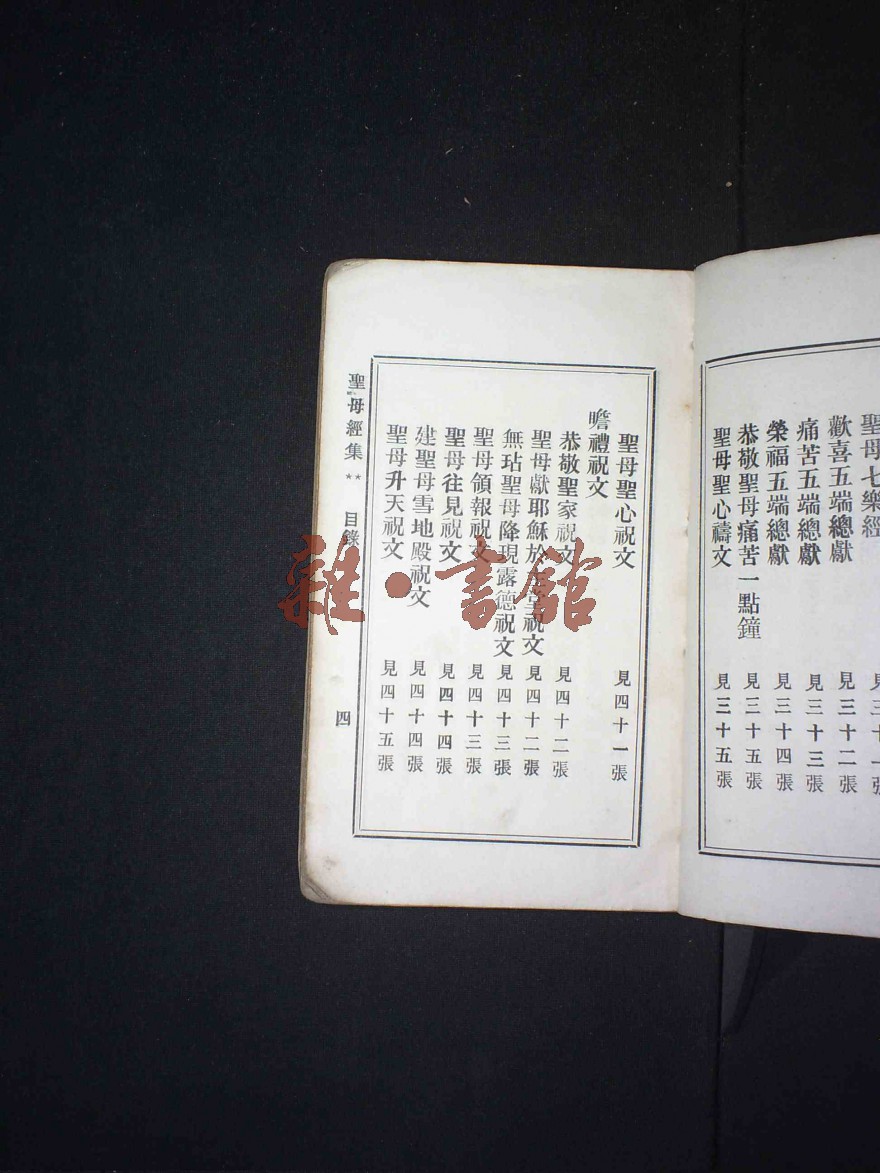 聖母七樂經 見三十一張
歡喜五端總獻 見三十二張
痛苦五端總獻 見三十三張
榮福五端總獻 見三十四張
恭敬聖母痛苦一點鐘 見三十五張
聖母聖心禱文 見三十五張
聖母聖心祝文 見四十一張
瞻禮祝文
恭敬聖家祝文 見四十二張
聖母獻耶穌於主堂祝文 見四十二張
無玷聖母降現露德祝文 見四十三張
聖母領報祝文 見四十三張
聖母往見祝文 見四十四張
建聖母雪地殿祝文 見四十四張
聖母升天祝文 見四十五張
聖母經集 ** 目錄 四
雜·書館